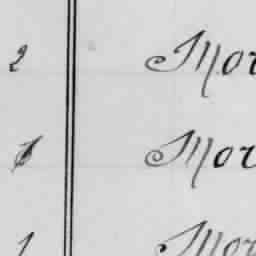 2 Mor
Mor
1 Mor